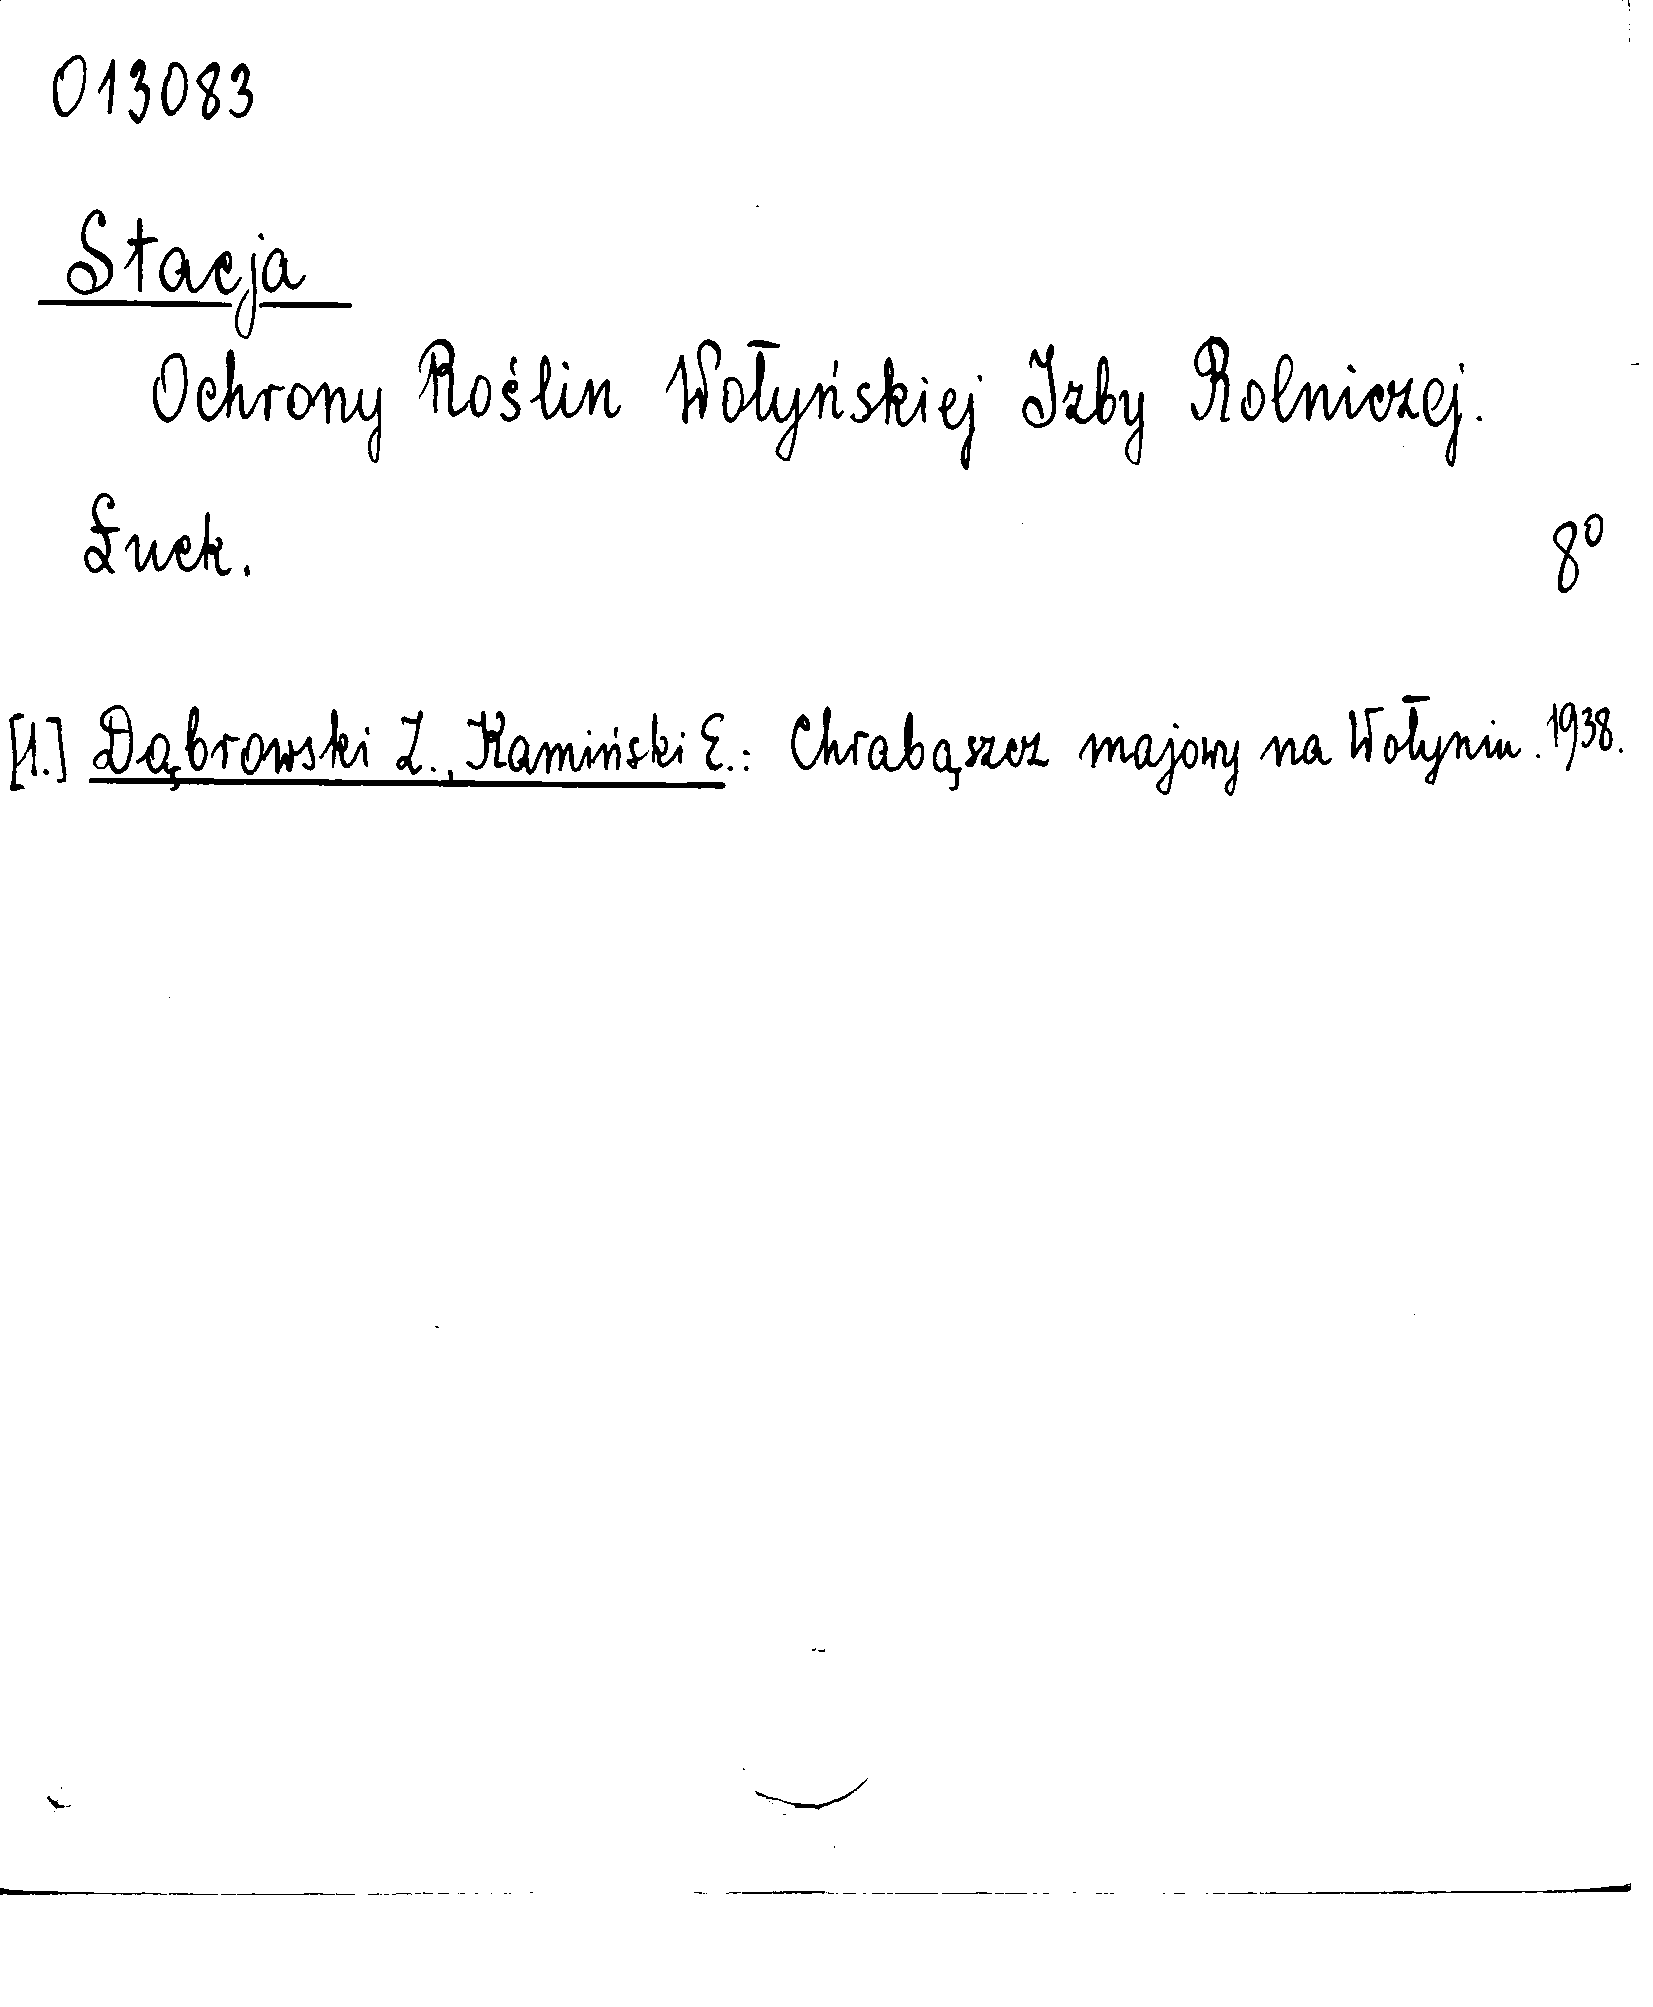 013083
Stacja
Ochrony Roślin Wołyńskiej Izby Rolniczej.
Łuck. 8°
[1.] Dąbrowski Z., Kamiński E.: Chrabąszcz majowy na Wołyniu. 1938.